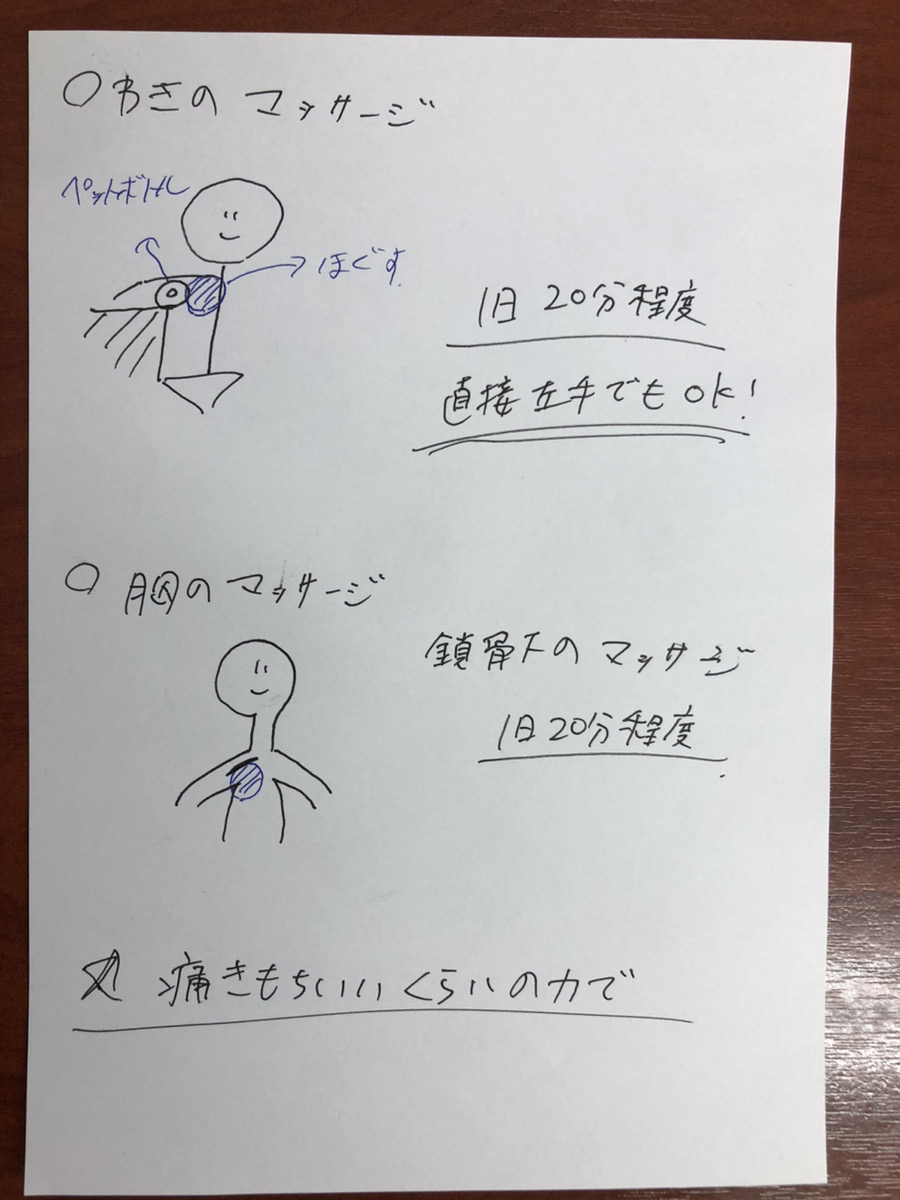 ○わきのマッサージ
ペットボトル
ほぐす
1日 20分程度
直接左手でもOK!
○ 胸のマッサージ
鎖骨下のマッサージ
1日20分程度
痛きもちいいくらいの力で